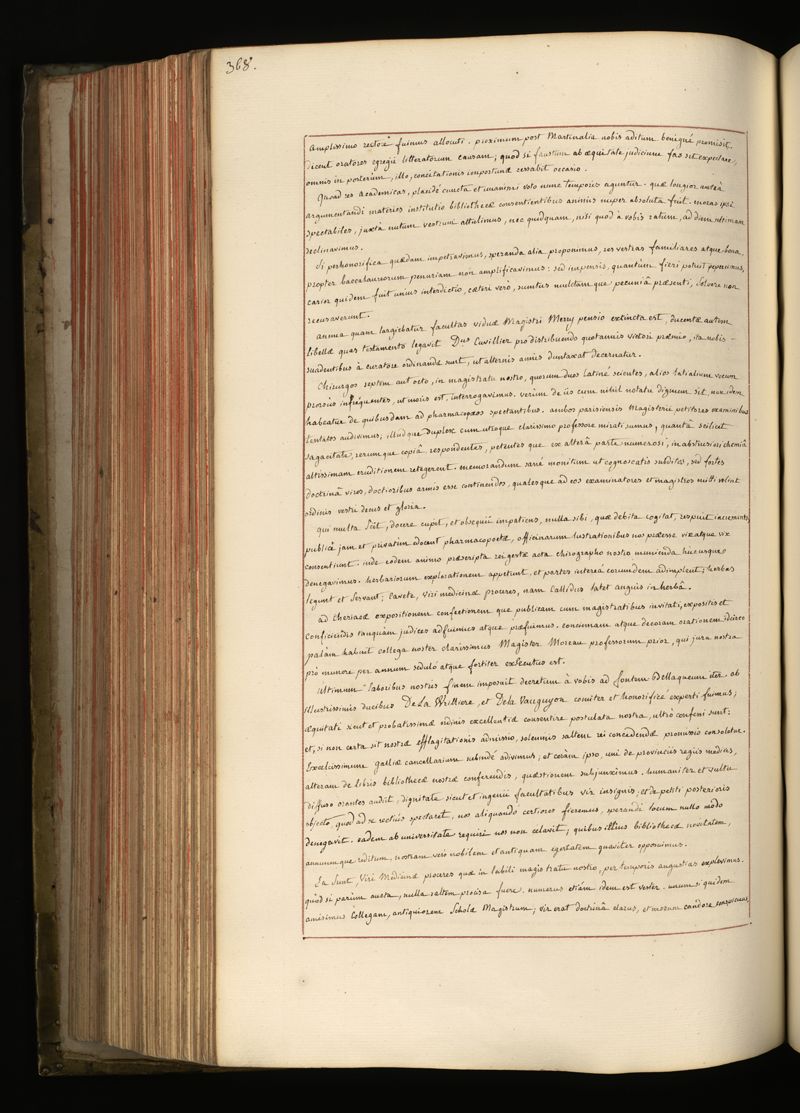 368.
amplissimo rectore fuimus allocuti. proximum post Martinalia nobis aditum benignè promisit.
decent oratores egregii litteratorum causam; quod si faustum ab æquitate judicium fas sit expectare,
omnis in posterum, illo, concitationis importunæ cessabit occasio.
Quoad res academicas, placidè cuncta et unanimi voto nunc temporis aguntur. quæ longior anteà
argumentandi materies institutio bibliothecæ consentientibus animis nuper absoluta fuit. moras ipsi
spectabiles, juxtà nutum vestrum attulimus, nec quidquam, nisi quod à vobis ratum, ad diem ultimam
declinavimus.
Si perhonorifica quædam impetravimus, speranda alia proponimus, res vestras familiares atque bona,
propter baccalaureorum penuriam non amplificavimus: sed impensis, quantùm fieri potuit pepercimus,
carior quidem fuit unius interdictio, cæteri verò, sumtus mulctamque pecuniâ præsenti, solvere non
recusaverunt.
annua quam largiebatur facultas viduæ Magistri Mery pensio extincta est, ducentæ autem
libellæ quas testamento legavit Dus Cuvillier pro distribuendo quotannis victori præmio, ita nobis-
suadentibus à curatore ordinandæ sunt, ut alternis annis duntaxat decernatur.
Chirurgos septem aut octo, in magistratu nostro, quorum duos latinè scientes, alios latialium vocum
prorsùs infrequentes, ut moris est, interrogavimus. verùm de iis cum nihil notatu dignum sit, non idem
habeatur de quibusdam ad pharmacopæos spectantibus. ambos parisiensis Magisterii petitores examinibus
tentatos audivimus; illudque duplex cum utroque clarissimo professore mirati sumus, quantâ scilicet
sagacitate, rerumque copiâ, respondentes, petentes que ex alterâ parte numerosi, in abstrusiori chemiâ
altissimam eruditionem retegerent. memorandum sanè monitum ut cognoscatis subditos, sed fortes
doctrinâ viros, doctioribus armis esse continendos, qualesque ad eos examinatores et magistros mitti velint
ordinis vestri decus et gloria.
qui multa scit, docere cupit, et obsequii impatiens, nulla sibi, quæ debita cogitat, respuit incrementa,
publicè jam et privatim edocent pharmacopoetæ, officinarum lustrationibus nos præesse vix atque vix
consentiunt. inde eodem animo præscripta rei gestæ acta chirographo nostro munienda hucusque
denegavimus. herbariorum explorationem appetunt, et partes intereà eorumdem adimplent; herbas
legunt et servant; cavete, viri medicinæ proceres, nam callidus latet anguis in herbâ.
ad theriacæ expositionem confectionem que publicam cum magistratibus invitati, expositis et
conficiendis tanquàm judices adfuimus atque præfuimus. concinnam atque decoram orationem idcirco
palàm habuit collega noster clarissimus Magister Moreau professorum prior, qui jura nostra
prò munere per annum sedulò atque fortiter executus est.
ultimum laboribus nostris finem imposuit decretum à vobis ad fontem Bellaqueum iter. ab
illustrissimis ducibus De La Vrilliere, et De la Vauguyon comiter et honorificè experti fuimus;
æquitati sicut et probatissimæ ordinis excellentiæ consentire postulata nostra, ultrò confessi sunt;
et, si non certa sit nostræ efflagitationis admissio, solemnis saltem rei concedendæ promissio consolatur.
Excelcissimum galliæ cancellarium subindè adivimus, et coràm ipso, uni de provinciis regiis medicis,
alteram de libris bibliothecæ nostræ conferendis, quæstionem subjunximus. humaniter et vultu
diffuso orantes audiit, dignitate sicut et ingenii facultatibus vir insignis, et de petiti posterioris
objecto, quod ad se rectiùs spectaret, nos aliquandò certiores fieremus, sperandi locum nullo modo
denegavit. eadem ab universitate requiri nos non celavit; quibus illius bibliothecæ novitatem,
annuumque reditum, nostram verò nobilem et antiquam egestatem gnaviter opposuimus.
Ea sunt, Viri Medicinæ proceres quæ in labili magistratu nostro, per temporis angustias explevimus.
quòd si parùm aucta, nulla saltem procisa fuere. numerus etiàm idem est vester. unum siquidem
amisimus Collegam, antiquiorem Scholæ Magistrum; vir erat doctrinâ clarus, et morum candore conspicuus,